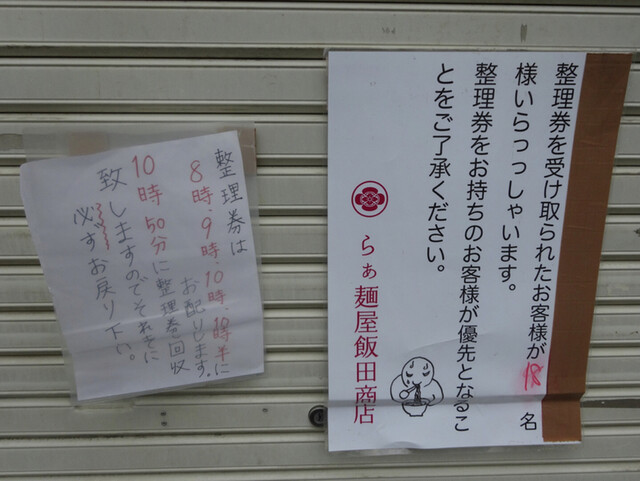 整理券を受け取られたお客様が18名
様いらっっしゃいます。
整理券をお持ちのお客様が優先となるこ
とをご了承ください。
らぁ麺屋飯田商店
整理券は
8時、9時、10時、10時半に
お配りします。
10時50分に整理券回収
致しますのでそれまでに
必ずお戻り下さい。